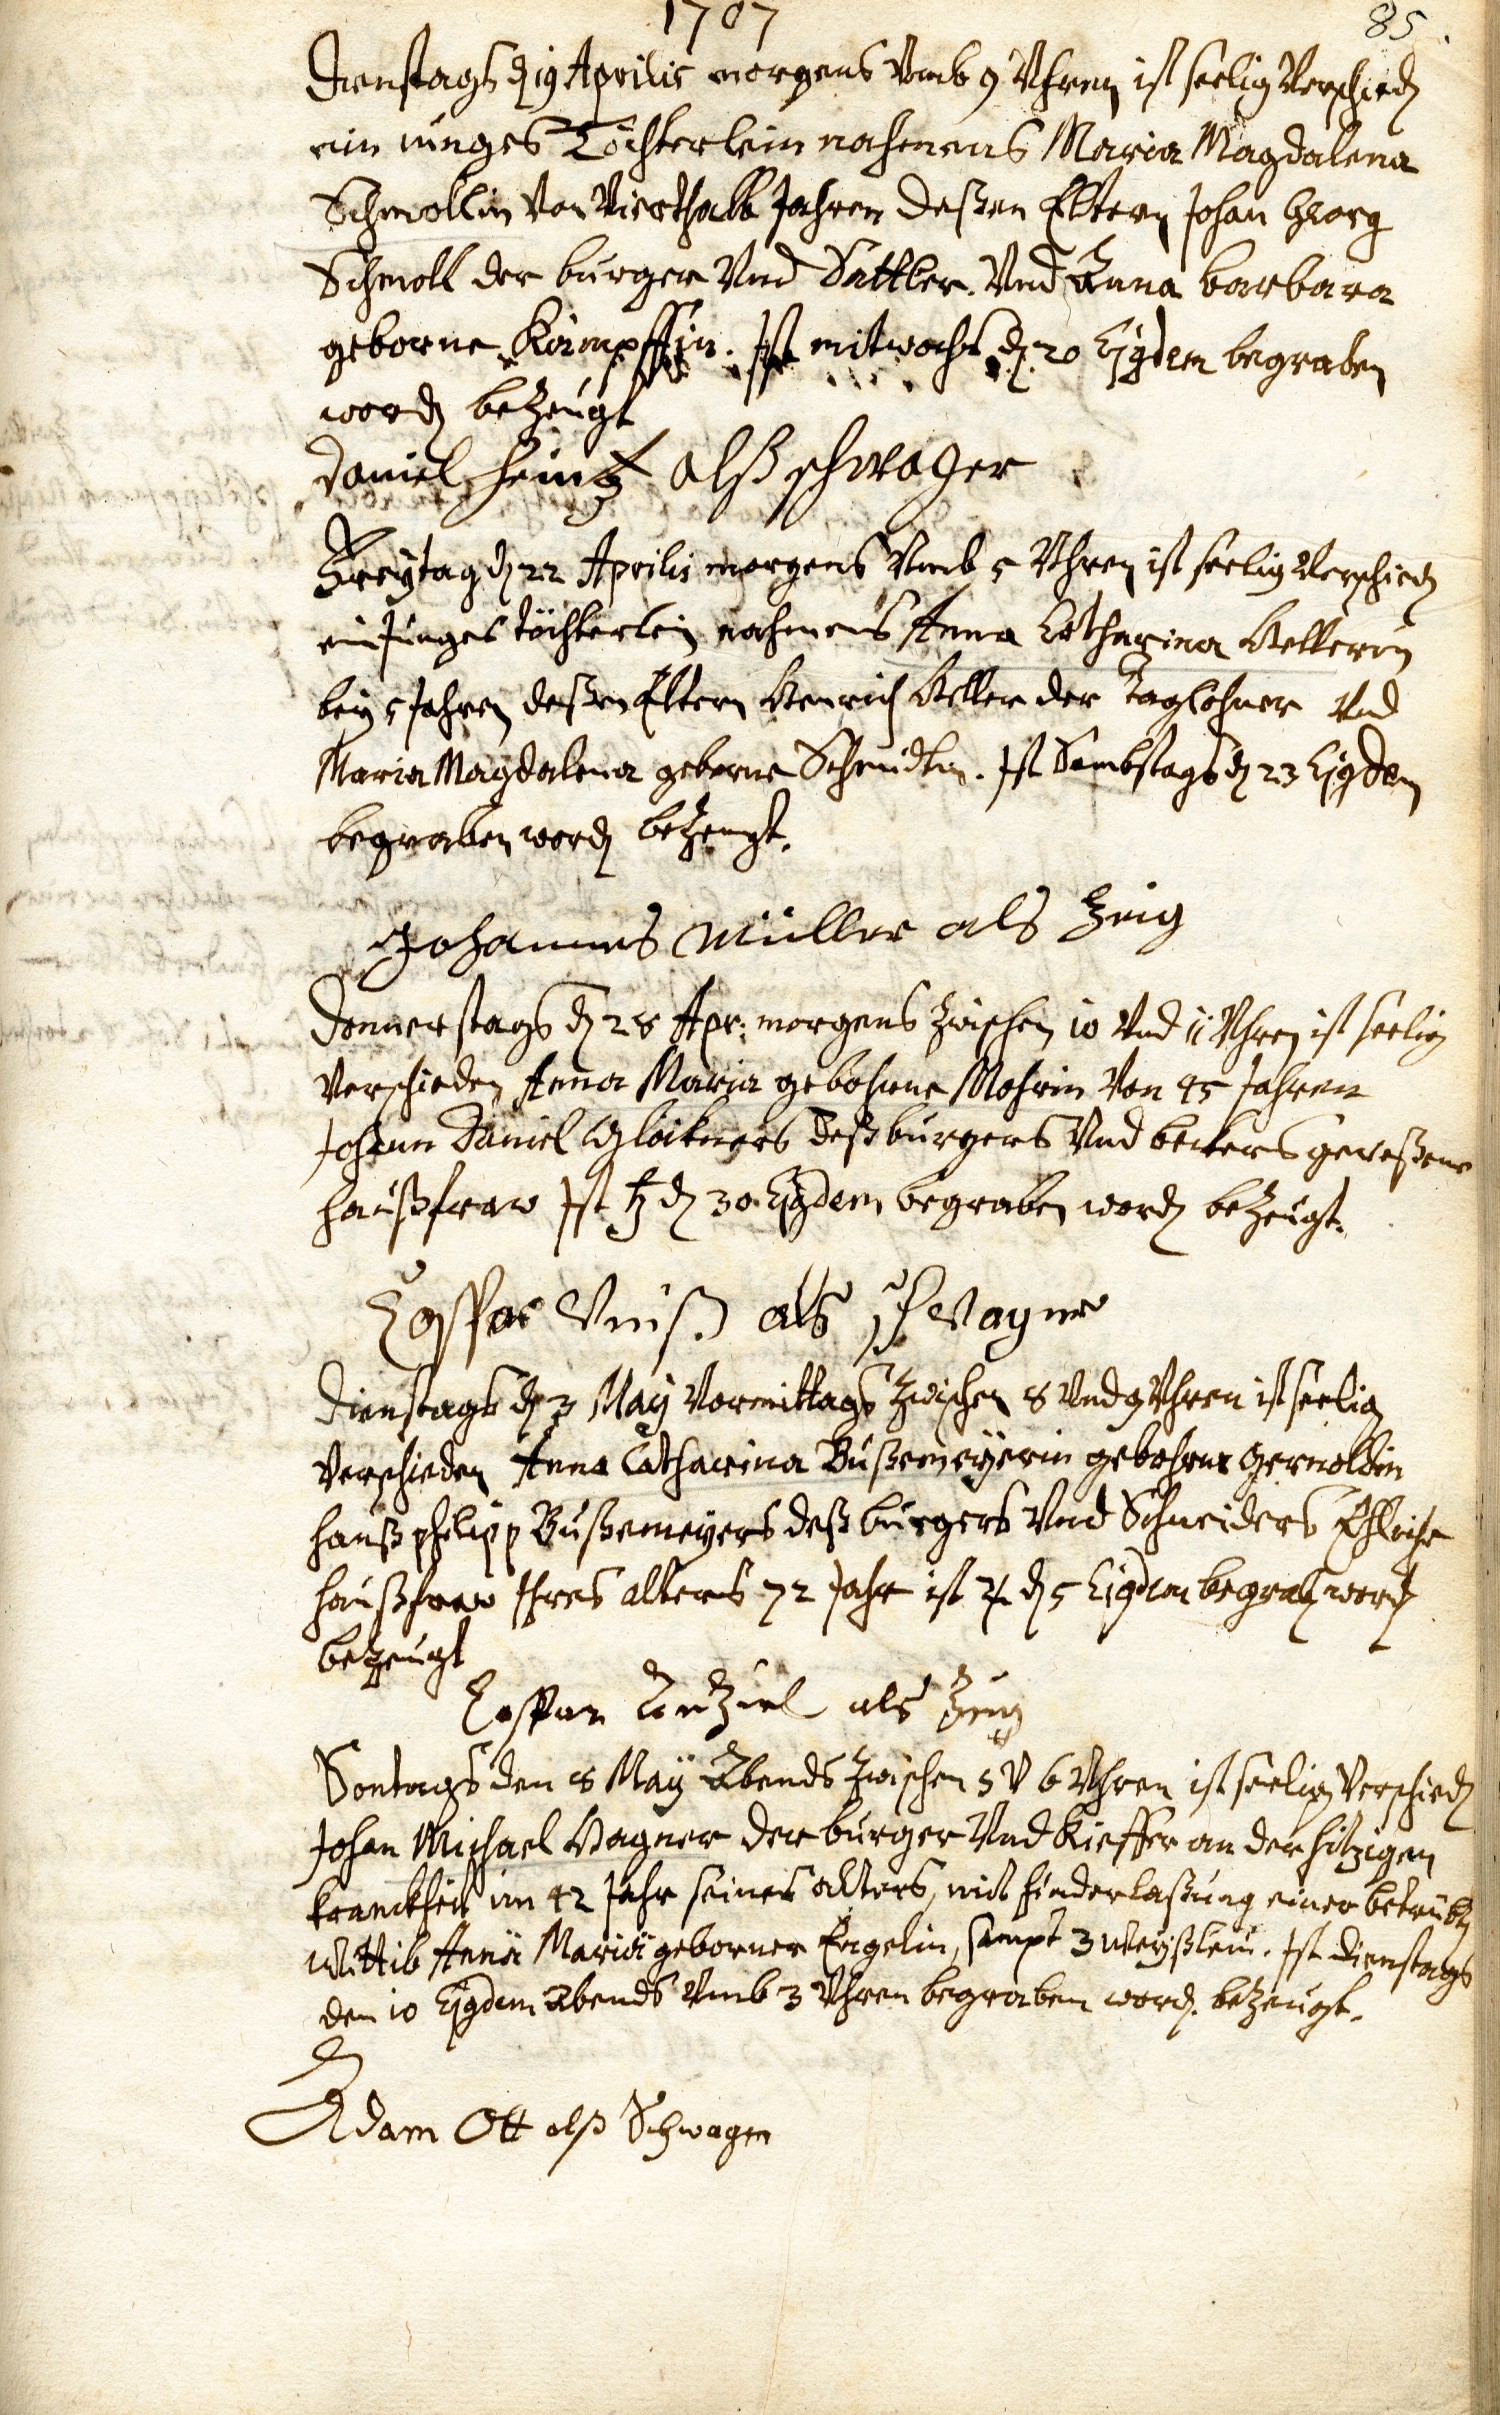 1707
85.
Dienstags d 19 Aprilis morgens Vmb 9 Vhren ist seelig Verschied
ein iunges Töchterlein nahmens Maria Magdalena
Schmollin Von Vierthalb Jahren deßen Eltern Johan Georg
Schmoll der burger Vnd Sattler. Vnd Anna barbara
geborne Kämpffin. Ist mitwochs d. 20 Ejgdem begraben
word bezeugt
Daniel heintz alß schwager
Freytag d 22 Aprilis morgens Vmb 5 Vhren ist seelig Verschied
ein Junges töchterlein nahmens Anna Catharina Kellerin
bey 5 Jahren deßen Eltern Henrich Keller der Taglöhner Vnd
Maria Magdalena geborne Schmidtin. Ist Sambstags d 23 Ejgdem
begraben word bezeugt.
Johannes Müller als Zeig
Donnerstags d 28 Apr: morgens Zwischen 10 Vnd 11 Vhren ist seelig
Verschieden Anna Maria gebohrne Mohrin Von 45 Jahren
Johann Daniel Glöckners deß burgers Vnd beckers geweßene
haußfraw Ist ♄ d 30 Ejgdem begraben word bezeugt.
als
Dienstags d 3 May Vormittags Zwischen 8 Vnd 9 Vhren ist seelig
Verschieden Anna Catharina Bußemeyerin gebohrne Gernoldin
hanß philipp Bußemeyers deß burgers Vnd Schneiders Ehliche
haußfraw Ihres alters 72 Jahr ist ♃ d 5 Ejgdem begrab word
bezeugt
Casspar als Zeug
Sontags den 8 May Abends Zwischen 5 V 6 Vhren ist seelig Verschied
Johan Michael Wagner der burger Vnd Kieffer an der hitzigen
kranckheit im 42 Jahr seines alters, mit hinderlaßung einer betrübt
Wittib Annä Mariä geborner Engelin, sampt 3 Weyßlein. Ist Dienstags
den 10 Ejgdem Abends Vmb 3 Vhren begraben word. bezeugt.
Adam Ott alß Schwager